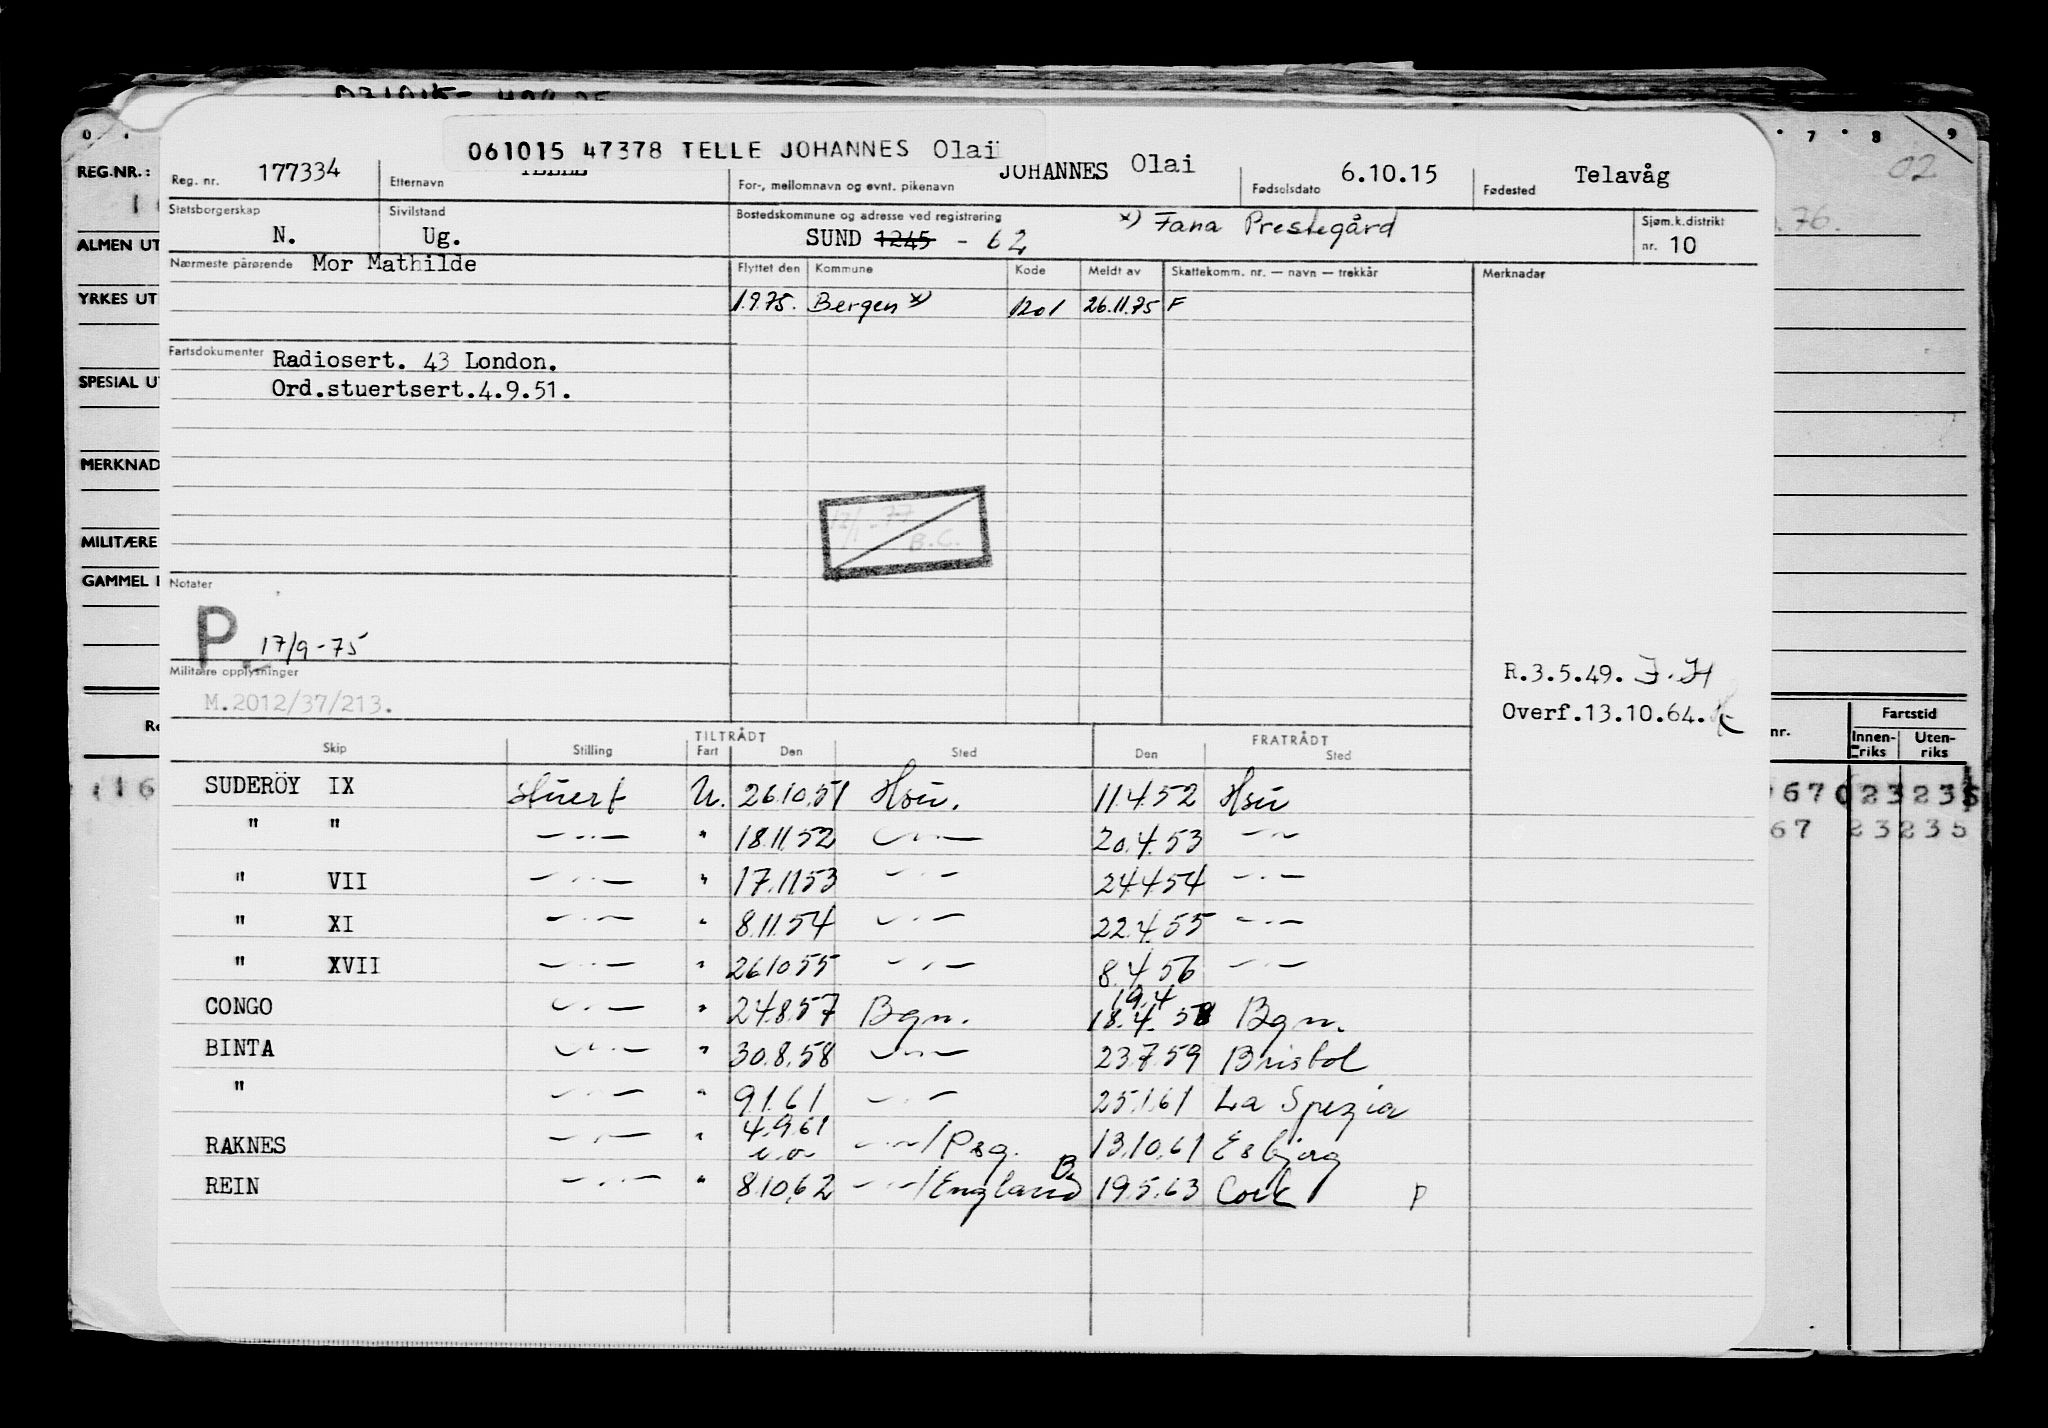 0 7 8 9
02
061015 47378 TELLE JOHANNES Olai
REG.NR.:
Reg. nr. 177334 Etternavn For-, mellomnavn og evnt. pikenavn JOHANNES Olai Fødselsdato 6.10.15 Fødested Telavåg
Statsborgerskap N. Sivilstand Ug. Bostedskommune og adresse ved registrering SUND 1245 - 62 x) Fana Prestegård Sjøm.k.distrikt nr. 10
76.
ALMEN UT
Nærmeste pårørende Mor Mathilde Flyttet den Kommune Kode Meldt av Skattekomm. nr. — navn — trekkår Merknader
YRKES UT
1.9.75. Bergen x) 1201 26.11.75 F
Fartsdokumenter Radiosert. 43 London.
SPESIAL UT
Ord.stuertsert.4.9.51.
MERKNAD
12/1-77
B.C.
MILITÆRE
GAMMEL
Notater
P. 17/9-75
Militære opplysninger
M.2012/37/213.
R.3.5.49. J.H
Overf.13.10.64.
Skip Stilling TILTRÅDT Fart Den Sted FRATRÅDT Den Sted
nr. Fartstid Innen-riks Uten-riks
SUDERÖY IX stuert U. 26.10.51 Hsn. 11.4.52 Hsn
" " —"— " 18.11.52 —"— 20.4.53 —"—
" VII —"— " 17.11.53 —"— 24.4.54 —"—
" XI —"— " 8.11.54 —"— 22.4.55 —"—
" XVII —"— " 26.10.55 —"— 8.4.56 —"—
CONGO —"— " 24.8.57 Bgn. 19.4 18.4.58 Bgn.
BINTA —"— " 30.8.58 —"— 23.7.59 Bristol
" —"— " 9.1.61 —"— 25.1.61 La Spezia
RAKNES —"— " 4.9.61 —"—/Psg. 13.10.61 Esbjerg
REIN —"— " 8.10.62 —"—/England B. 19.5.63 Cork P
67 23235